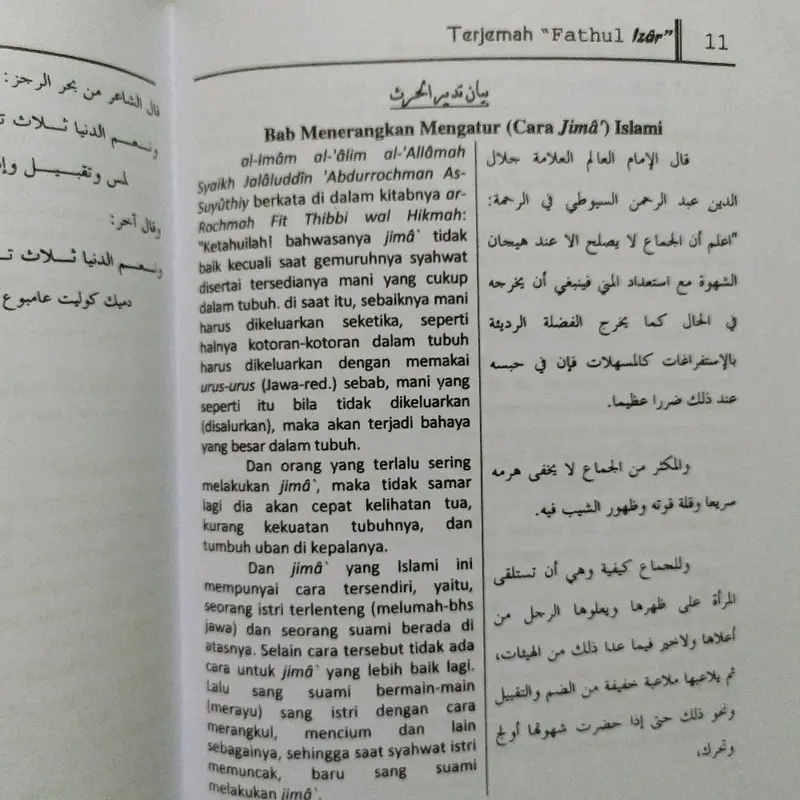 قال الشاعر من بحر الرجز:
ونعم الدنيا ثلاث
لمس وتقبيل
وقال آخر:
ونعم الدنيا ثلاث
دميك كوليت عامبوع
Terjemah "Fathul Izâr" 11
بيان تدبير الحرث
Bab Menerangkan Mengatur (Cara Jimâ') Islami
al-Imâm al-'âlim al-'Allâmah
Syaikh Jalâluddîn 'Abdurrochman As-
Suyûthiy berkata di dalam kitabnya ar-
Rochmah Fit Thibbi wal Hikmah:
"Ketahuilah! bahwasanya jimâ` tidak
baik kecuali saat gemuruhnya syahwat
disertai tersedianya mani yang cukup
dalam tubuh. di saat itu, sebaiknya mani
harus dikeluarkan seketika, seperti
halnya kotoran-kotoran dalam tubuh
harus dikeluarkan dengan memakai
urus-urus (Jawa-red.) sebab, mani yang
seperti itu bila tidak dikeluarkan
(disalurkan), maka akan terjadi bahaya
yang besar dalam tubuh.
Dan orang yang terlalu sering
melakukan jimâ`, maka tidak samar
lagi dia akan cepat kelihatan tua,
kurang kekuatan tubuhnya, dan
tumbuh uban di kepalanya.
Dan jimâ` yang Islami ini
mempunyai cara tersendiri, yaitu,
seorang istri terlenteng (melumah-bhs
jawa) dan seorang suami berada di
atasnya. Selain cara tersebut tidak ada
cara untuk jimâ` yang lebih baik lagi.
Lalu sang suami bermain-main
(merayu) sang istri dengan cara
merangkul, mencium dan lain
sebagainya, sehingga saat syahwat istri
memuncak, baru sang suami
melakukan jimâ`.
قال الإمام العالم العلامة جلال
الدين عبد الرحمن السيوطي في الرحمة:
"اعلم أن الجماع لا يصلح الا عند هيجان
الشهوة مع استعداد المني فينبغي أن يخرجه
في الحال كما يخرج الفضلة الرديئة
بالإستفراغات كالمسهلات فإن في حبسه
عند ذلك ضررا عظيما.
والمكثر من الجماع لا يخفى هرمه
سريعا وقلة قوته وظهور الشيب فيه.
وللجماع كيفية وهي أن تستلقى
المرأة على ظهرها ويعلوها الرجل من
أعلاها ولاخير فيما عدا ذلك من الهيئات،
ثم يلاعبها ملاعبة خفيفة من الضم والتقبيل
ونحو ذلك حتى إذا حضرت شهوتها أولج
وتحرك،